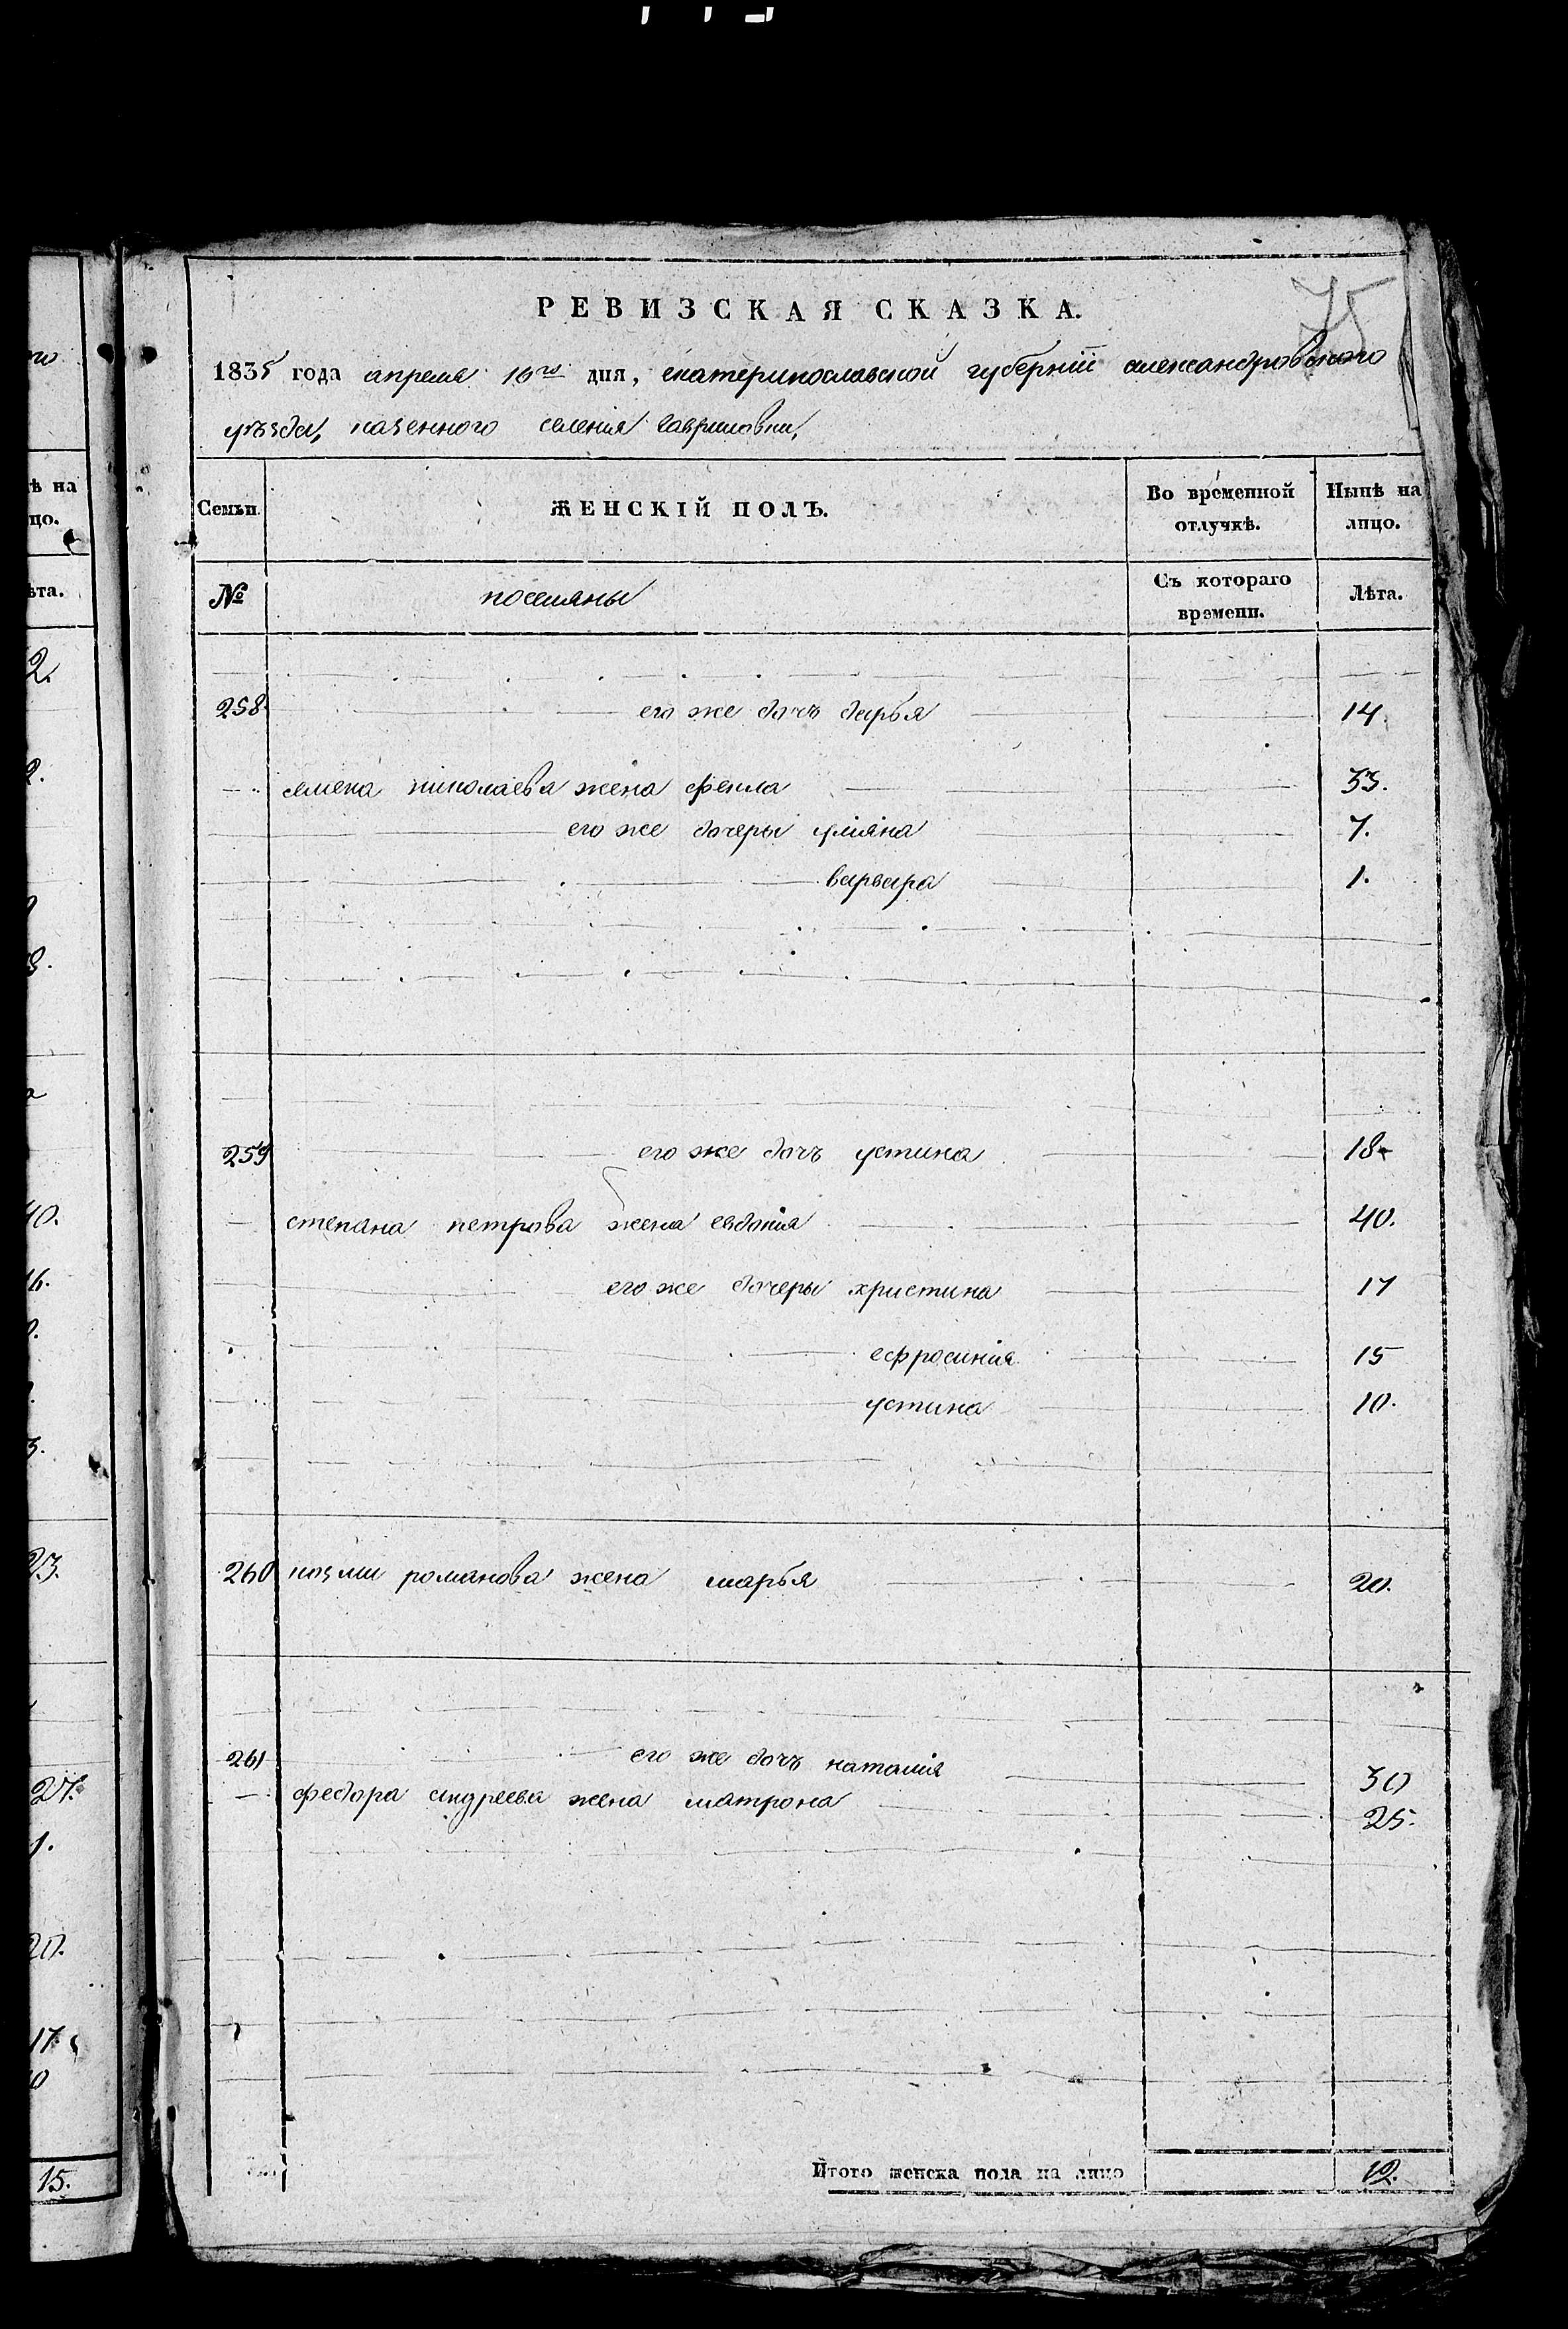 75
РЕВИЗСКАЯ СКАЗКА.
1835 года апреля 10го дня, екатеринославской губернiи александровского
уѣзда, казенного селенiя гавриловки,
Семьи. ЖЕНСКІЙ ПОЛЪ. Во временной отлучкѣ. Нынѣ на лицо.
№ поселяны Съ котораго времени. Лѣта.
258 его же дочъ дарья 14.
семена николаева жена фекла 33.
его же дочеры улiяна 7.
варвара 1.
259 его же дочъ устина 18
степана петрова жена евдокiя 40.
его же дочеры христина 17
ефросинiя 15
устина 10.
260 козми романова жена марья 20.
261 его же дочъ наталiя 30
федора андреева жена матрона 25.
Итого женска пола на лицо 12.
ѣ на
цо.
ѣта.
2.
2.
3.
40.
16.
3.
23.
27.
1.
20.
17.
10
15.